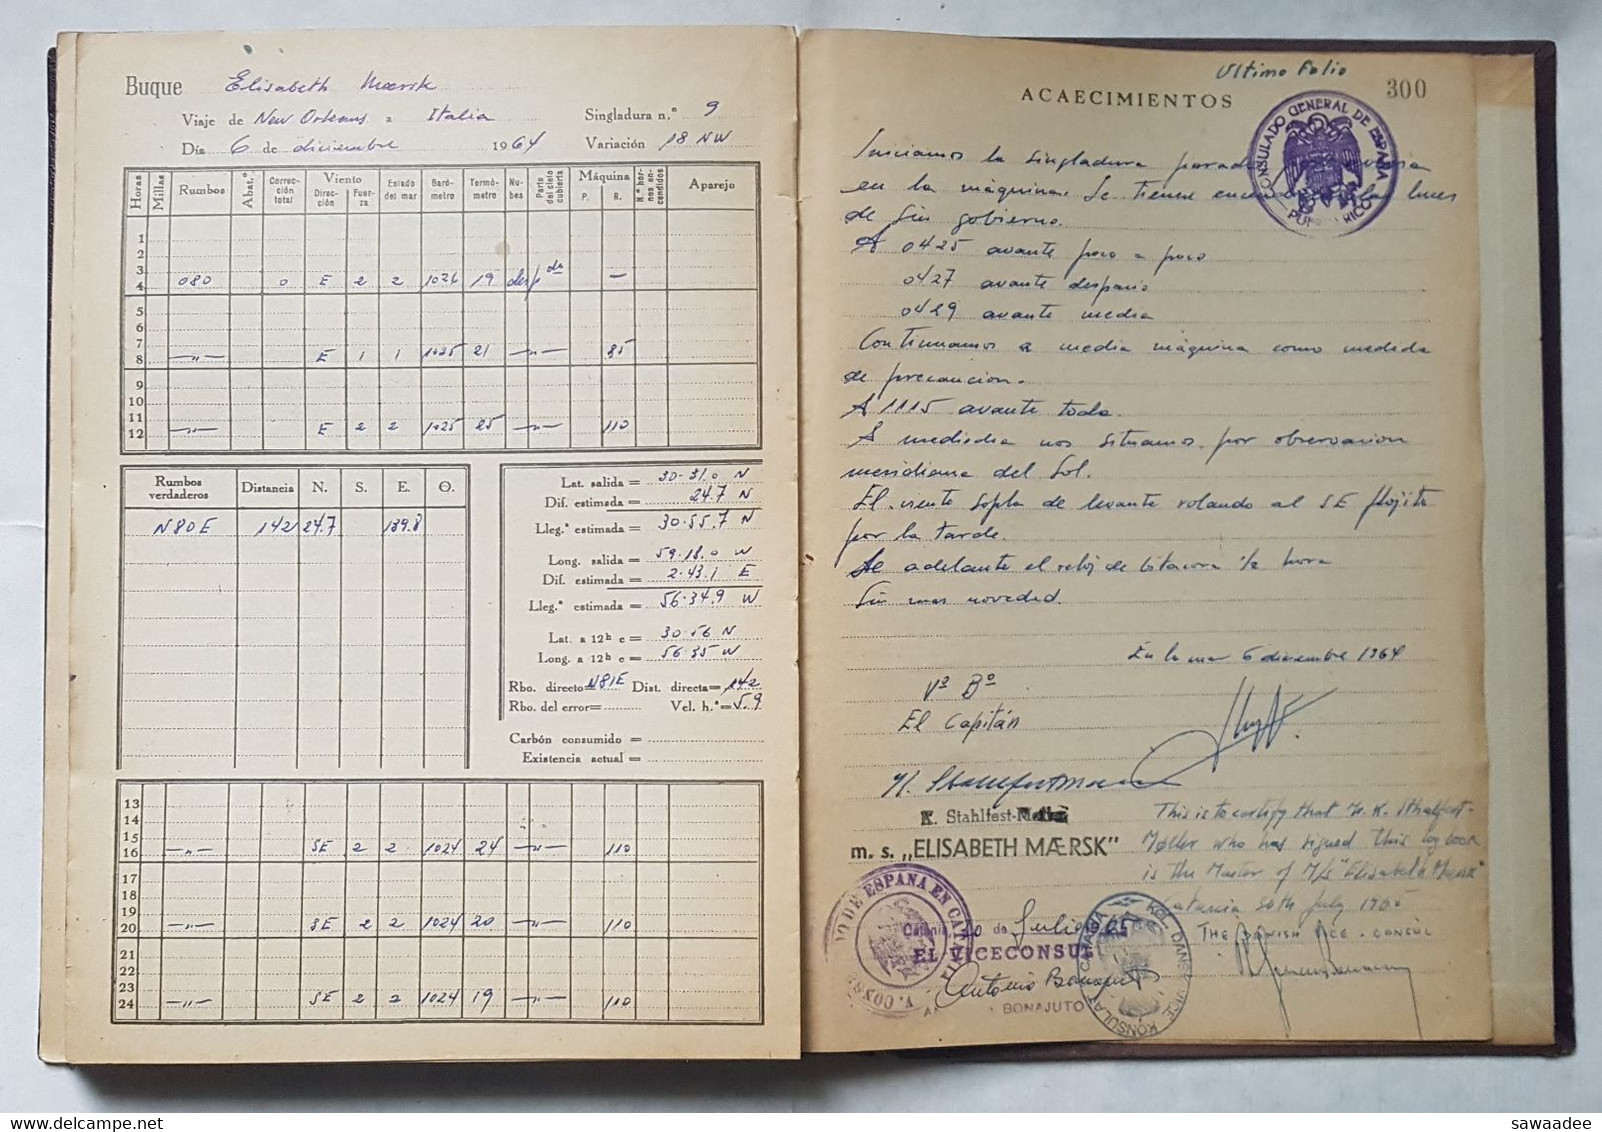 Buque Elisabeth Mærsk
Viaje de New Orleans a Italia Singladura n.º 9
Día 6 de diciembre 1964 Variación 18 NW
Horas Millas Rumbos Abat.º Corrección total Viento Dirección Fuerza Estado del mar Barómetro Termómetro Nubes Parte del cielo cubierta Máquina P. R. N.º hornos encendidos Aparejo
1
2
3
4 080 0 E 2 2 1026 19 desp da —
5
6
7
8 —„— E 1 1 1025 21 —„— 85
9
10
11
12 —„— E 2 2 1025 25 —„— 110
Rumbos verdaderos Distancia N. S. E. O.
N80E 142 24.7 139.8
Lat. salida = 30-31.0 N
Dif. estimada = 24.7 N
Lleg.ª estimada = 30.55.7 N
Long. salida = 59.18.0 W
Dif. estimada = 2.43.1 E
Lleg.ª estimada = 56.34.9 W
Lat. a 12h e = 30.56 N
Long. a 12h e = 56.35 W
Rbo. directo = N81E Dist. directa = 142
Rbo. del error = Vel. h.ª = 5.9
Carbón consumido =
Existencia actual =
13
14
15
16 —„— SE 2 2 1024 24 —„— 110
17
18
19
20 —„— SE 2 2 1024 20 —„— 110
21
22
23
24 —„— SE 2 2 1024 19 —„— 110
Ultimo Folio
ACAECIMIENTOS 300
CONSULADO GENERAL DE ESPAÑA
PUERTO RICO
Iniciamos la singladura parados
en la máquina. Se tienen las luces
de Sin gobierno.
A 0425 avante poco a poco
0427 avante despacio
0429 avante media
Continuamos a media máquina como medida
de precaucion.
A 1115 avante toda.
A mediodia nos situamos por observacion
meridiana del Sol.
El viento sopla de levante rolando al SE flojito
por la tarde.
Se adelante el reloj de bitacora 1/2 hora
Sin mas novedad.
En la mar 6 diciembre 1964
Vº Bº
El Capitán
K. Stahlfest-
m. s. „ELISABETH MÆRSK"
This is to certify that K. Sthalfest-
Møller who has signed this logbook
is the Master of M/s "Elisabeth Mærsk"
Catania 30th July 1965
THE DANISH VICE-CONSUL
DE ESPAÑA EN CATANIA
Catania, 30 de Julio 65
EL VICECONSUL
Antonio Bonajuto
BONAJUTO
KGL. DANSK VICE KONSULAT CATANIA
www.delcampe.net
sawaadee